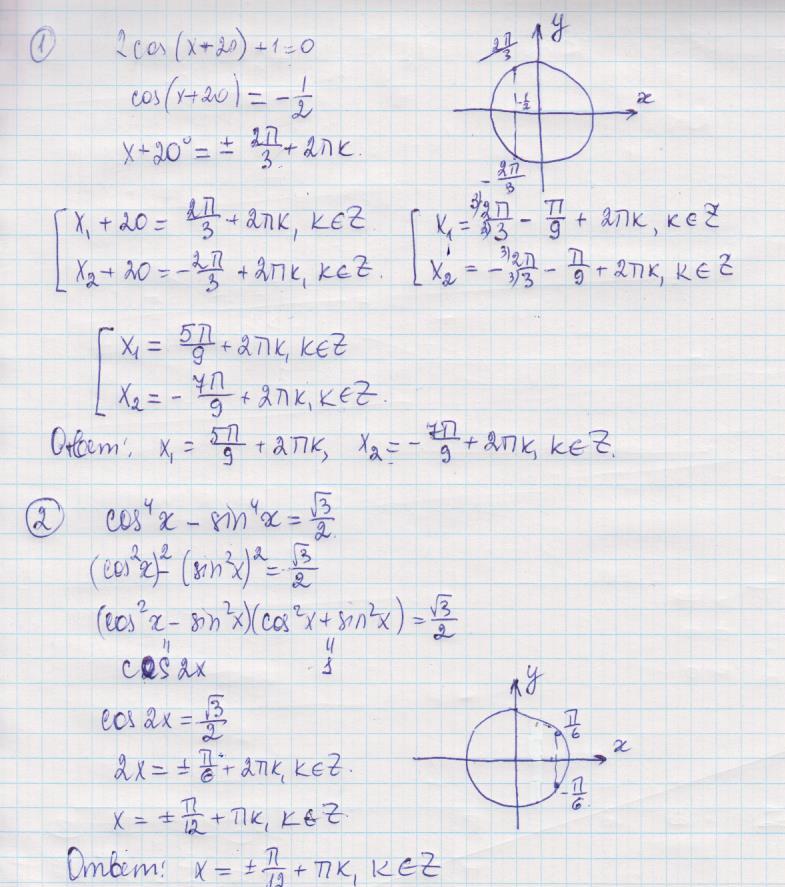 1 2cos(x+20)+1=0
cos(x+20) = -1/2
x+20° = ± 2π/3 + 2πk.
y
x
2π/3
-1/2
-2π/3
[ x₁ + 20 = 2π/3 + 2πk, k∈Z.
x₂ + 20 = -2π/3 + 2πk, k∈Z.
[ x₁ = ³⁾2π/3 - π/9 + 2πk, k∈Z
x₂ = -³⁾2π/3 - π/9 + 2πk, k∈Z
[ x₁ = 5π/9 + 2πk, k∈Z
x₂ = -7π/9 + 2πk, k∈Z.
Ответ: x₁ = 5π/9 + 2πk, x₂ = -7π/9 + 2πk, k∈Z.
2 cos⁴x - sin⁴x = √3/2
(cos²x)² - (sin²x)² = √3/2
(cos²x - sin²x)(cos²x + sin²x) = √3/2
cos 2x 1
cos 2x = √3/2
2x = ± π/6 + 2πk, k∈Z.
x = ± π/12 + πk, k∈Z.
y
x
π/6
-π/6
Ответ: x = ± π/12 + πk, k∈Z